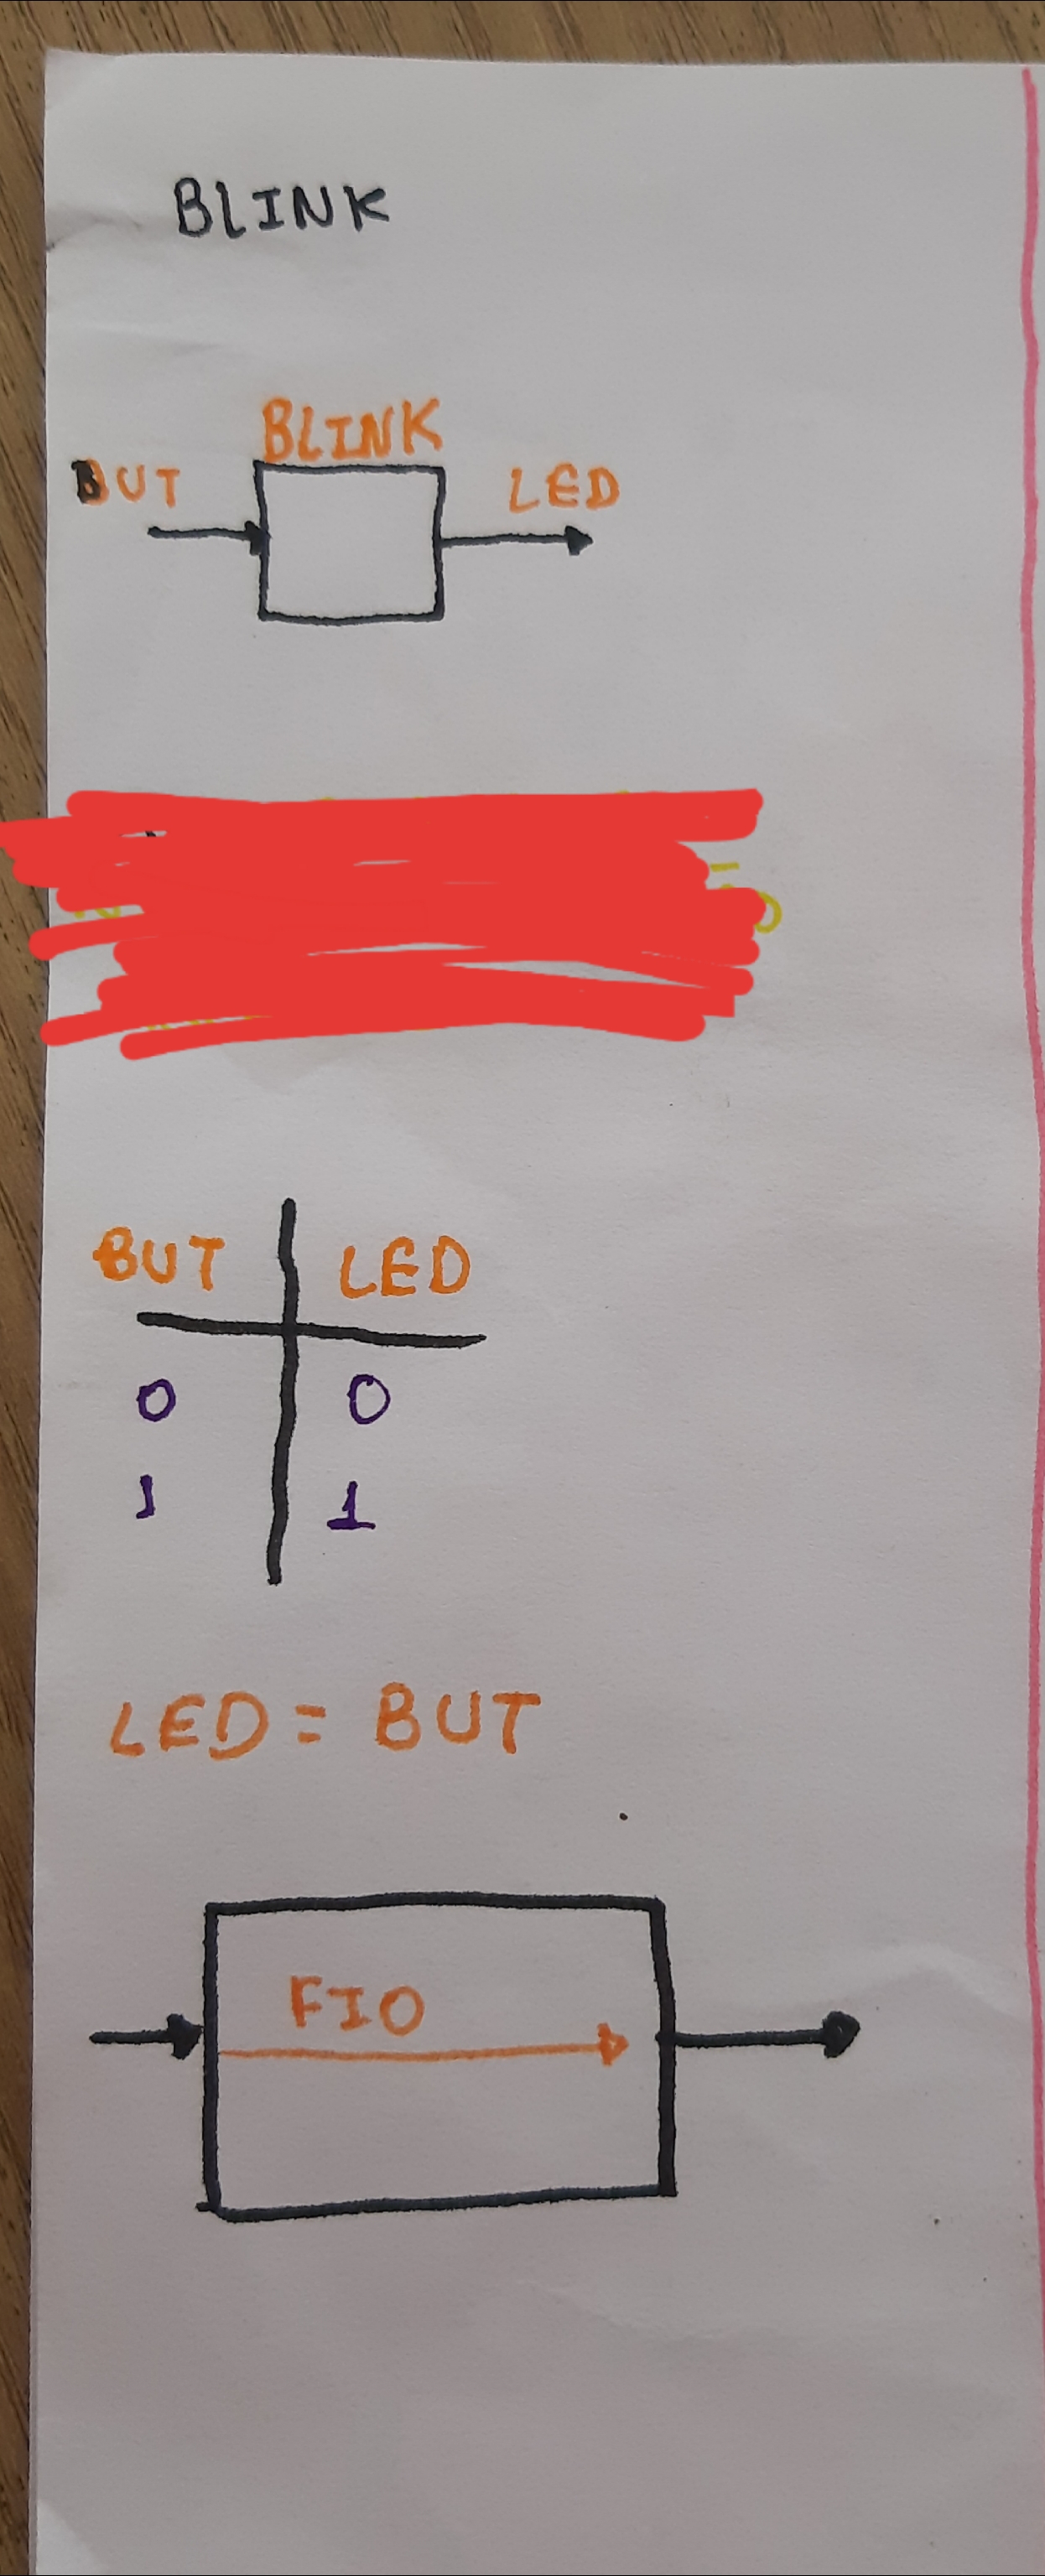 BLINK
BLINK
BUT LED
BUT LED
0 0
1 1
LED = BUT
FIO